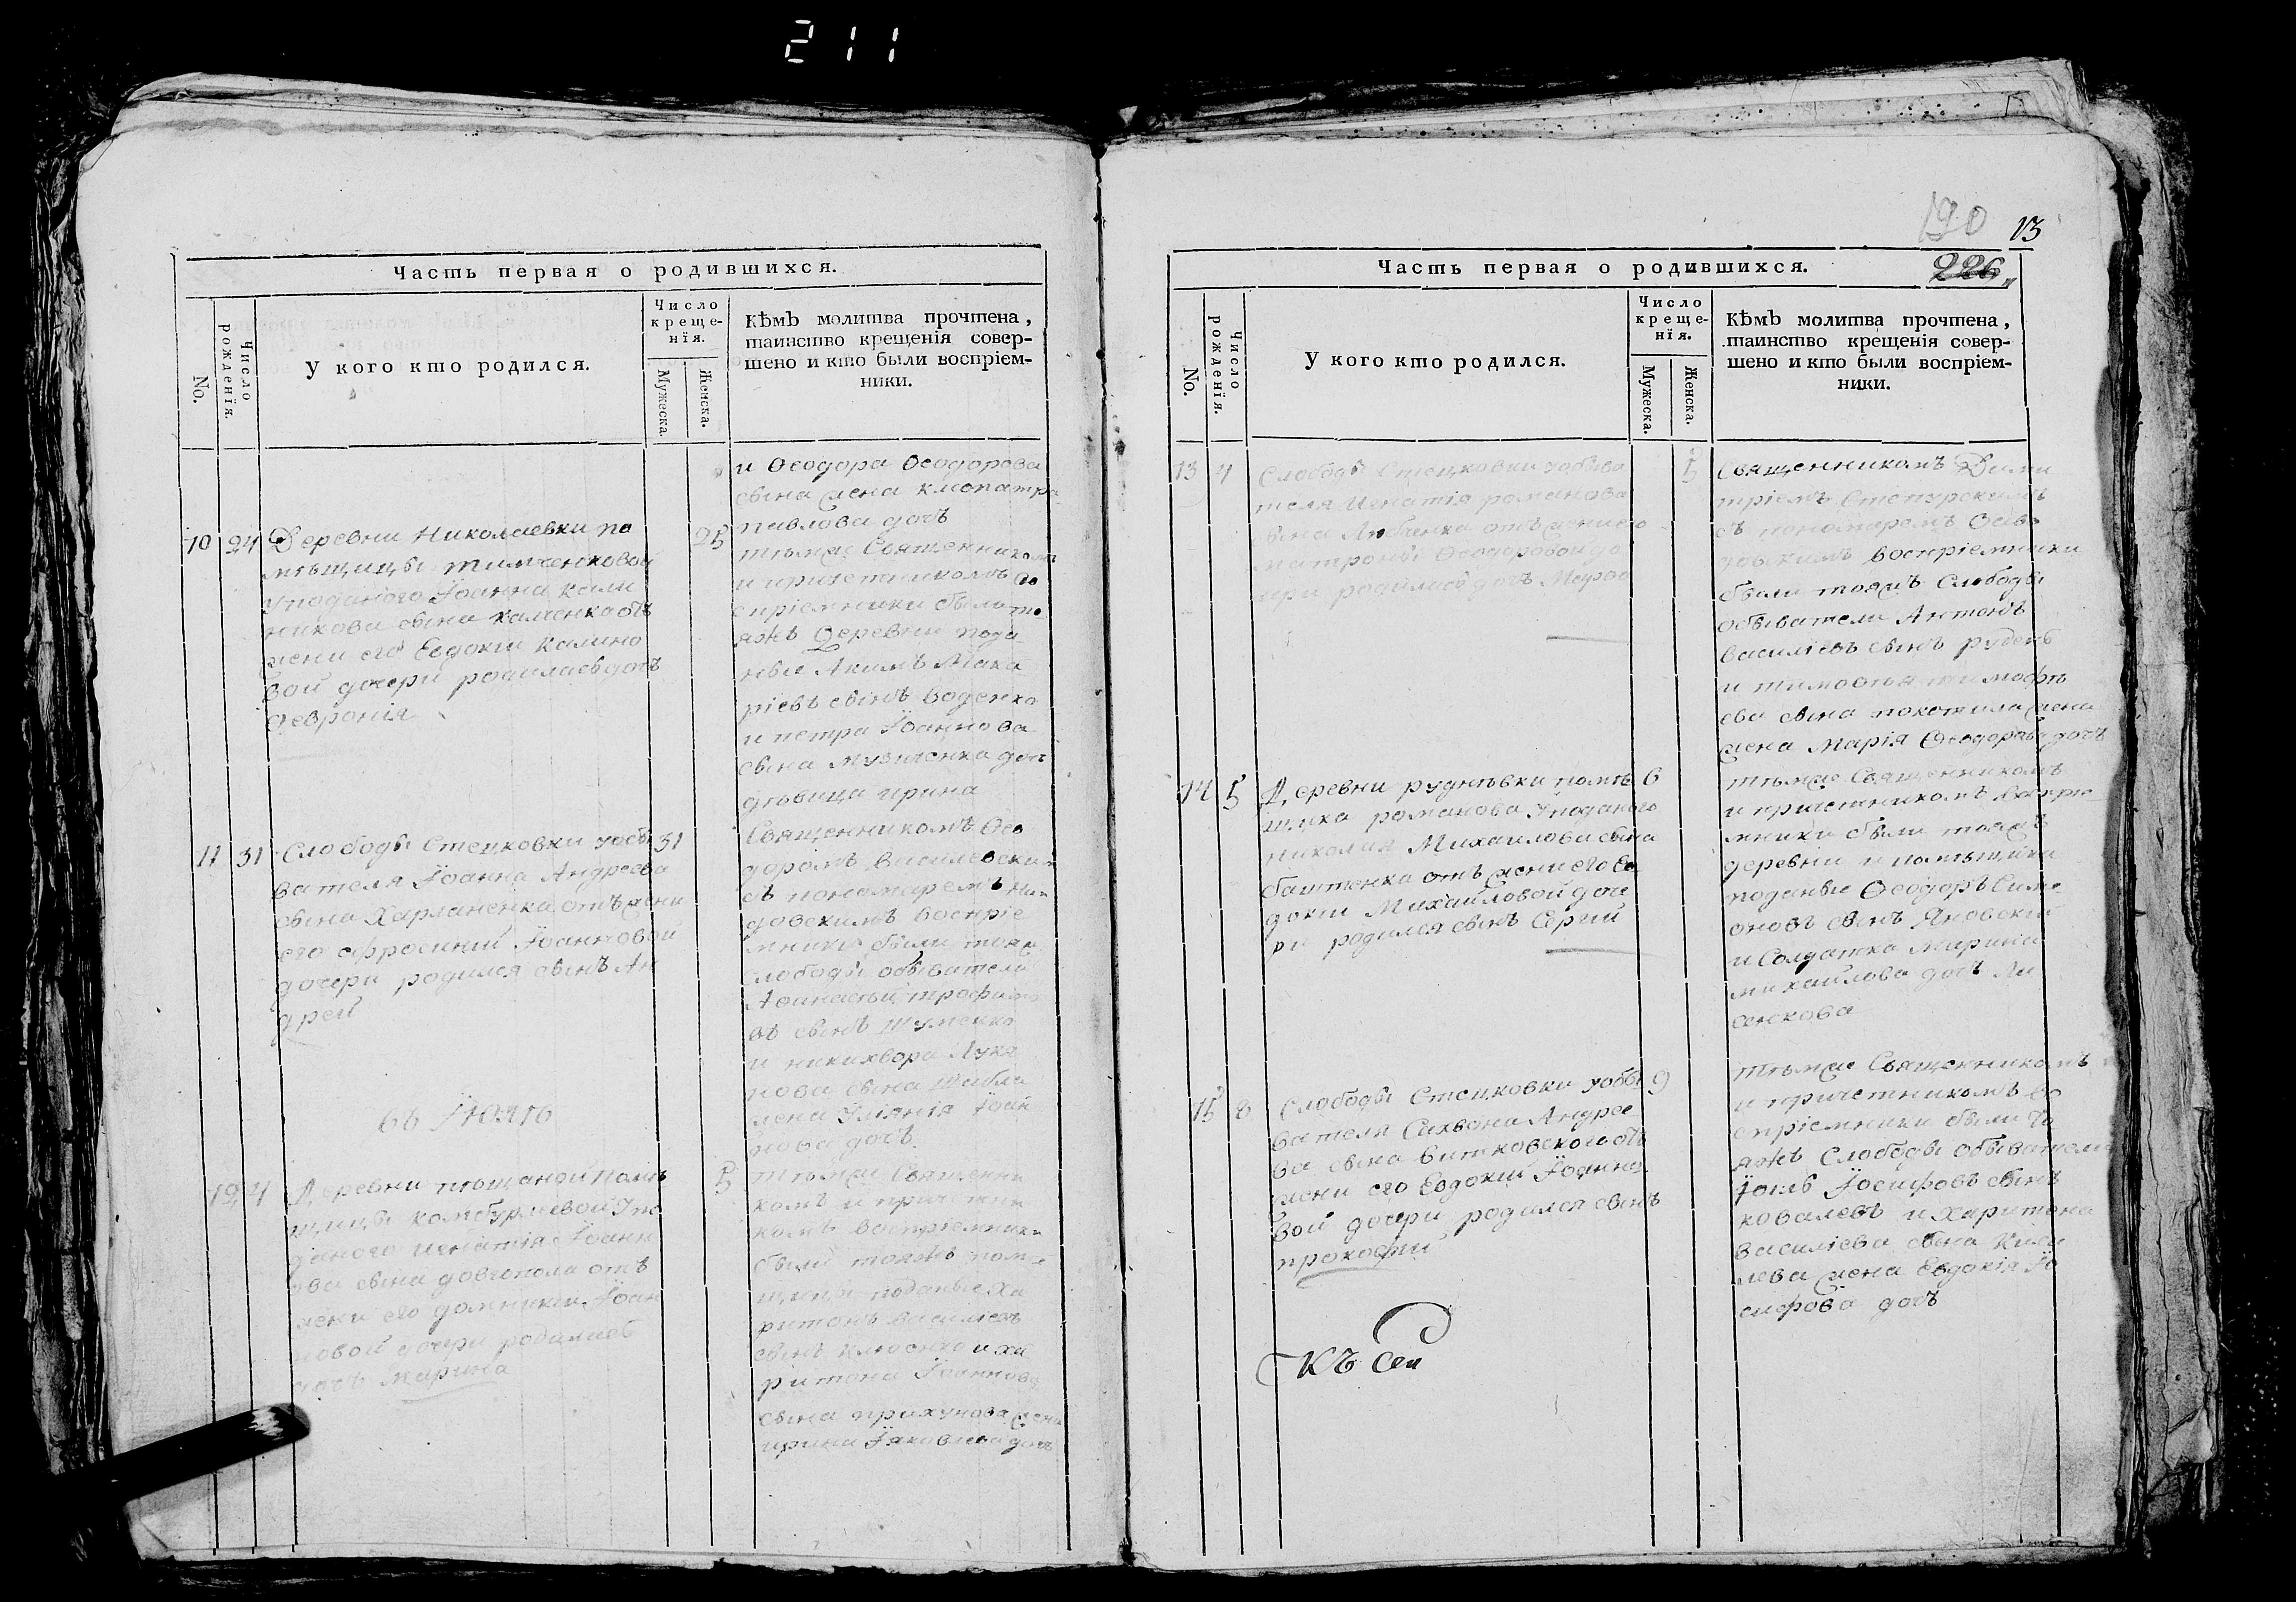 211
Часть первая о родившихся.
No.
Число рожденїя.
У кого кто родился.
Число
креще-
нїя.
Мужеска.
Женска.
Кѣмъ молитва прочтена,
таинство крещенія совер-
шено и кто были воспріем-
ники.
и Ѳеодора Ѳеодорова
сына жена Клеопатра
павлова дочь
10 24 Деревни Николаевки по
мѣщицы тимченковой
уподаного Їоанна кали
никова сына каменка отъ
жени его Евдокіи Калино
вой дочери родиласьдочь
Ѳевронія
25
тѣмже Священникомъ
и причетникомъ во
спріемники были то
яжъ Деревни пода
ные Акимъ Мака
ріевъ сынъ Воденко
и петра Їоаннова
сына Музиченка дочь
дѣвица ирина
11 31 Слободы Стецковки уобы
вателя Їоанна Андреева
сына Харланенка отъ жени
его ефросиніи Їоанновой
дочери родился сынъ Ан
дрей
31
Священникомъ Ѳео
доромъ Василевски
съ пономаремъ
довскимъ воспріе
мники были тояж
Слободы обыватели
Аѳанасій трофимо
въ сынъ Шуменко
и никихвора Лукя
нова сына
жена Уліянія Їоан
нова дочь
въ Їюлѣ
12 4 Деревни пѣщаной помѣ
щицы камбурлѣевой упо
даного игнатія Їоанн
ова сына довгопола отъ
жени его домникіи Їоан
новой дочери родилась
дочь Марина
5
тѣмже Священни
комъ и причетни
комъ воспріемники
были тояжъ помѣ
щицы поданые Ха
ритонъ Василіевъ
сынъ и ха
ритона Їоаннова
сына жена
ирина Їяковлева дочь
190
13
226
Часть первая о родившихся.
No.
Число рожденїя.
У кого кто родился.
Число
креще-
нїя.
Мужеска.
Женска.
Кѣмъ молитва прочтена,
таинство крещенія совер-
шено и кто были воспріем-
ники.
13 4 Слободы Стецковки уобыва
теля Игнатія романова
сына отъ жени его
матроны Ѳеодоровой до
чери родилась дочь Марфа
5
Священникомъ Дими
тріемъ Степурскимъ
съ пономаремъ
воспріемники
были тояжъ Слободы
обыватели Антонъ
Василіевъ сынъ рубенъ
и тимоѳѣя тимофѣ
ева сына покотила жена
жена Марія Ѳеодорова дочь
14 5 Деревни руднѣвки помѣ
щика романова уподаного
николая Михаилова сына
баштенка отъ жени его Ев
докіи Михаиловой доче
ри родился сынъ Сергій
6
тѣмже Священникомъ
и причетникомъ воспріе
мники были тояжъ
деревни и помѣщика
поданые Ѳеодоръ Симе
оновъ сынъ Яновскій
и Солдатка Марина
михаилова дочь Ли
сенкова
15 8 Слободы Стецковки уобы
вателя Сихвона Андрее
ва сына Витковского отъ
жени его Евдокіи Їоанно
вой дочери родился сынъ
прокофій
9
тѣмже Священникомъ
и причетникомъ во
спріемники были то
яжъ Слободы обыватели
Їовъ Їосифовъ сынъ
ковалевъ и Харитона
василіева сына
лева жена Евдокія Їо
сифова дочь
Къ сей